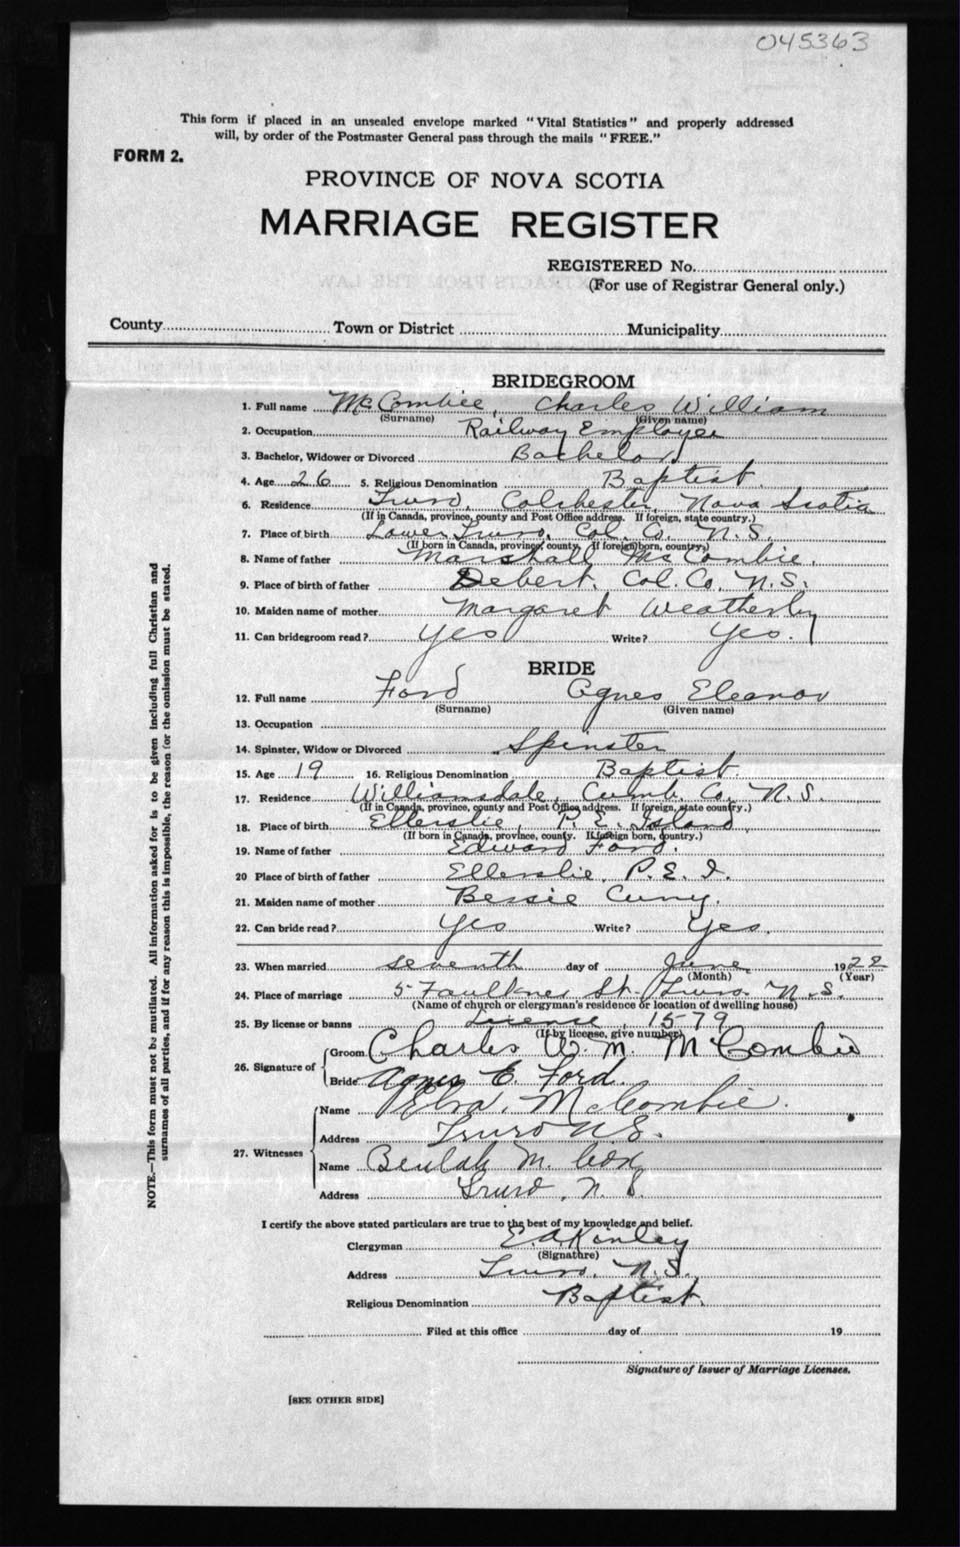 045363
This form if placed in an unsealed envelope marked "Vital Statistics" and properly addressed
will, by order of the Postmaster General pass through the mails "FREE."
FORM 2.
PROVINCE OF NOVA SCOTIA
MARRIAGE REGISTER
REGISTERED No.
(For use of Registrar General only.)
County Town or District Municipality
BRIDEGROOM
1. Full name McCombie, Charles William
(Surname) (Given name)
2. Occupation Railway Employee
3. Bachelor, Widower or Divorced Bachelor
4. Age 26 5. Religious Denomination Baptist.
6. Residence Truro, Colchester, Nova Scotia
(If in Canada, province, county and Post Office address. If foreign, state country.)
7. Place of birth Lower Truro, Col. Co. N.S.
(If born in Canada, province, county. If foreign born, country.)
8. Name of father Marshall McCombie.
9. Place of birth of father Debert, Col. Co. N.S.
10. Maiden name of mother Margaret Weatherby
11. Can bridegroom read? Yes Write? Yes.
BRIDE
12. Full name Ford Agnes Eleanor
(Surname) (Given name)
13. Occupation
14. Spinster, Widow or Divorced Spinster
15. Age 19 16. Religious Denomination Baptist.
17. Residence Williamsdale, Cumb. Co. N.S.
(If in Canada, province, county and Post Office address. If foreign, state country.)
18. Place of birth Ellerslie, P. E. Island
(If born in Canada, province, county. If foreign born, country.)
19. Name of father Edward Ford.
20 Place of birth of father Ellerslie, P.E.I.
21. Maiden name of mother Bessie
22. Can bride read? Yes Write? Yes.
23. When married seventh day of June 1922
(Month) (Year)
24. Place of marriage 5 Faulkner St. Truro N.S.
(Name of church or clergyman's residence or location of dwelling house)
25. By license or banns License, 1579
(If by license, give number)
26. Signature of Groom Charles Wm. McCombie
Bride Agnes E. Ford.
27. Witnesses Name McCombie.
Address Truro N.S.
Name Beulah M. Cox
Address Truro, N.S.
I certify the above stated particulars are true to the best of my knowledge and belief.
Clergyman E.A. Kinley
(Signature)
Address Truro, N.S.
Religious Denomination Baptist.
Filed at this office day of 19
Signature of Issuer of Marriage Licenses.
[SEE OTHER SIDE]
NOTE.—This form must not be mutilated. All information asked for is to be given including full Christian and
surnames of all parties, and if for any reason this is impossible, the reason for the omission must be stated.